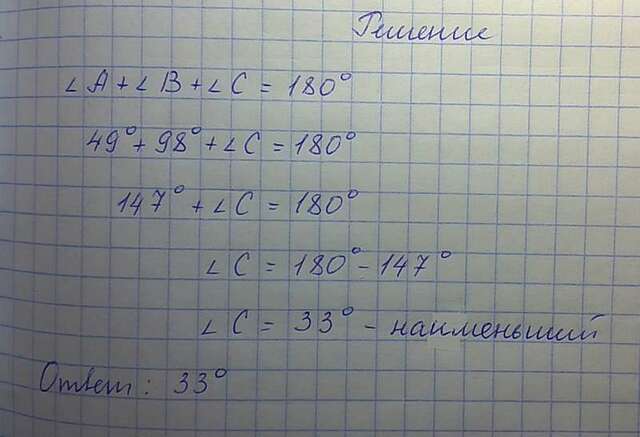 Решение
∠A + ∠B + ∠C = 180°
49° + 98° + ∠C = 180°
147° + ∠C = 180°
∠C = 180° - 147°
∠C = 33° - наименьший
Ответ: 33°